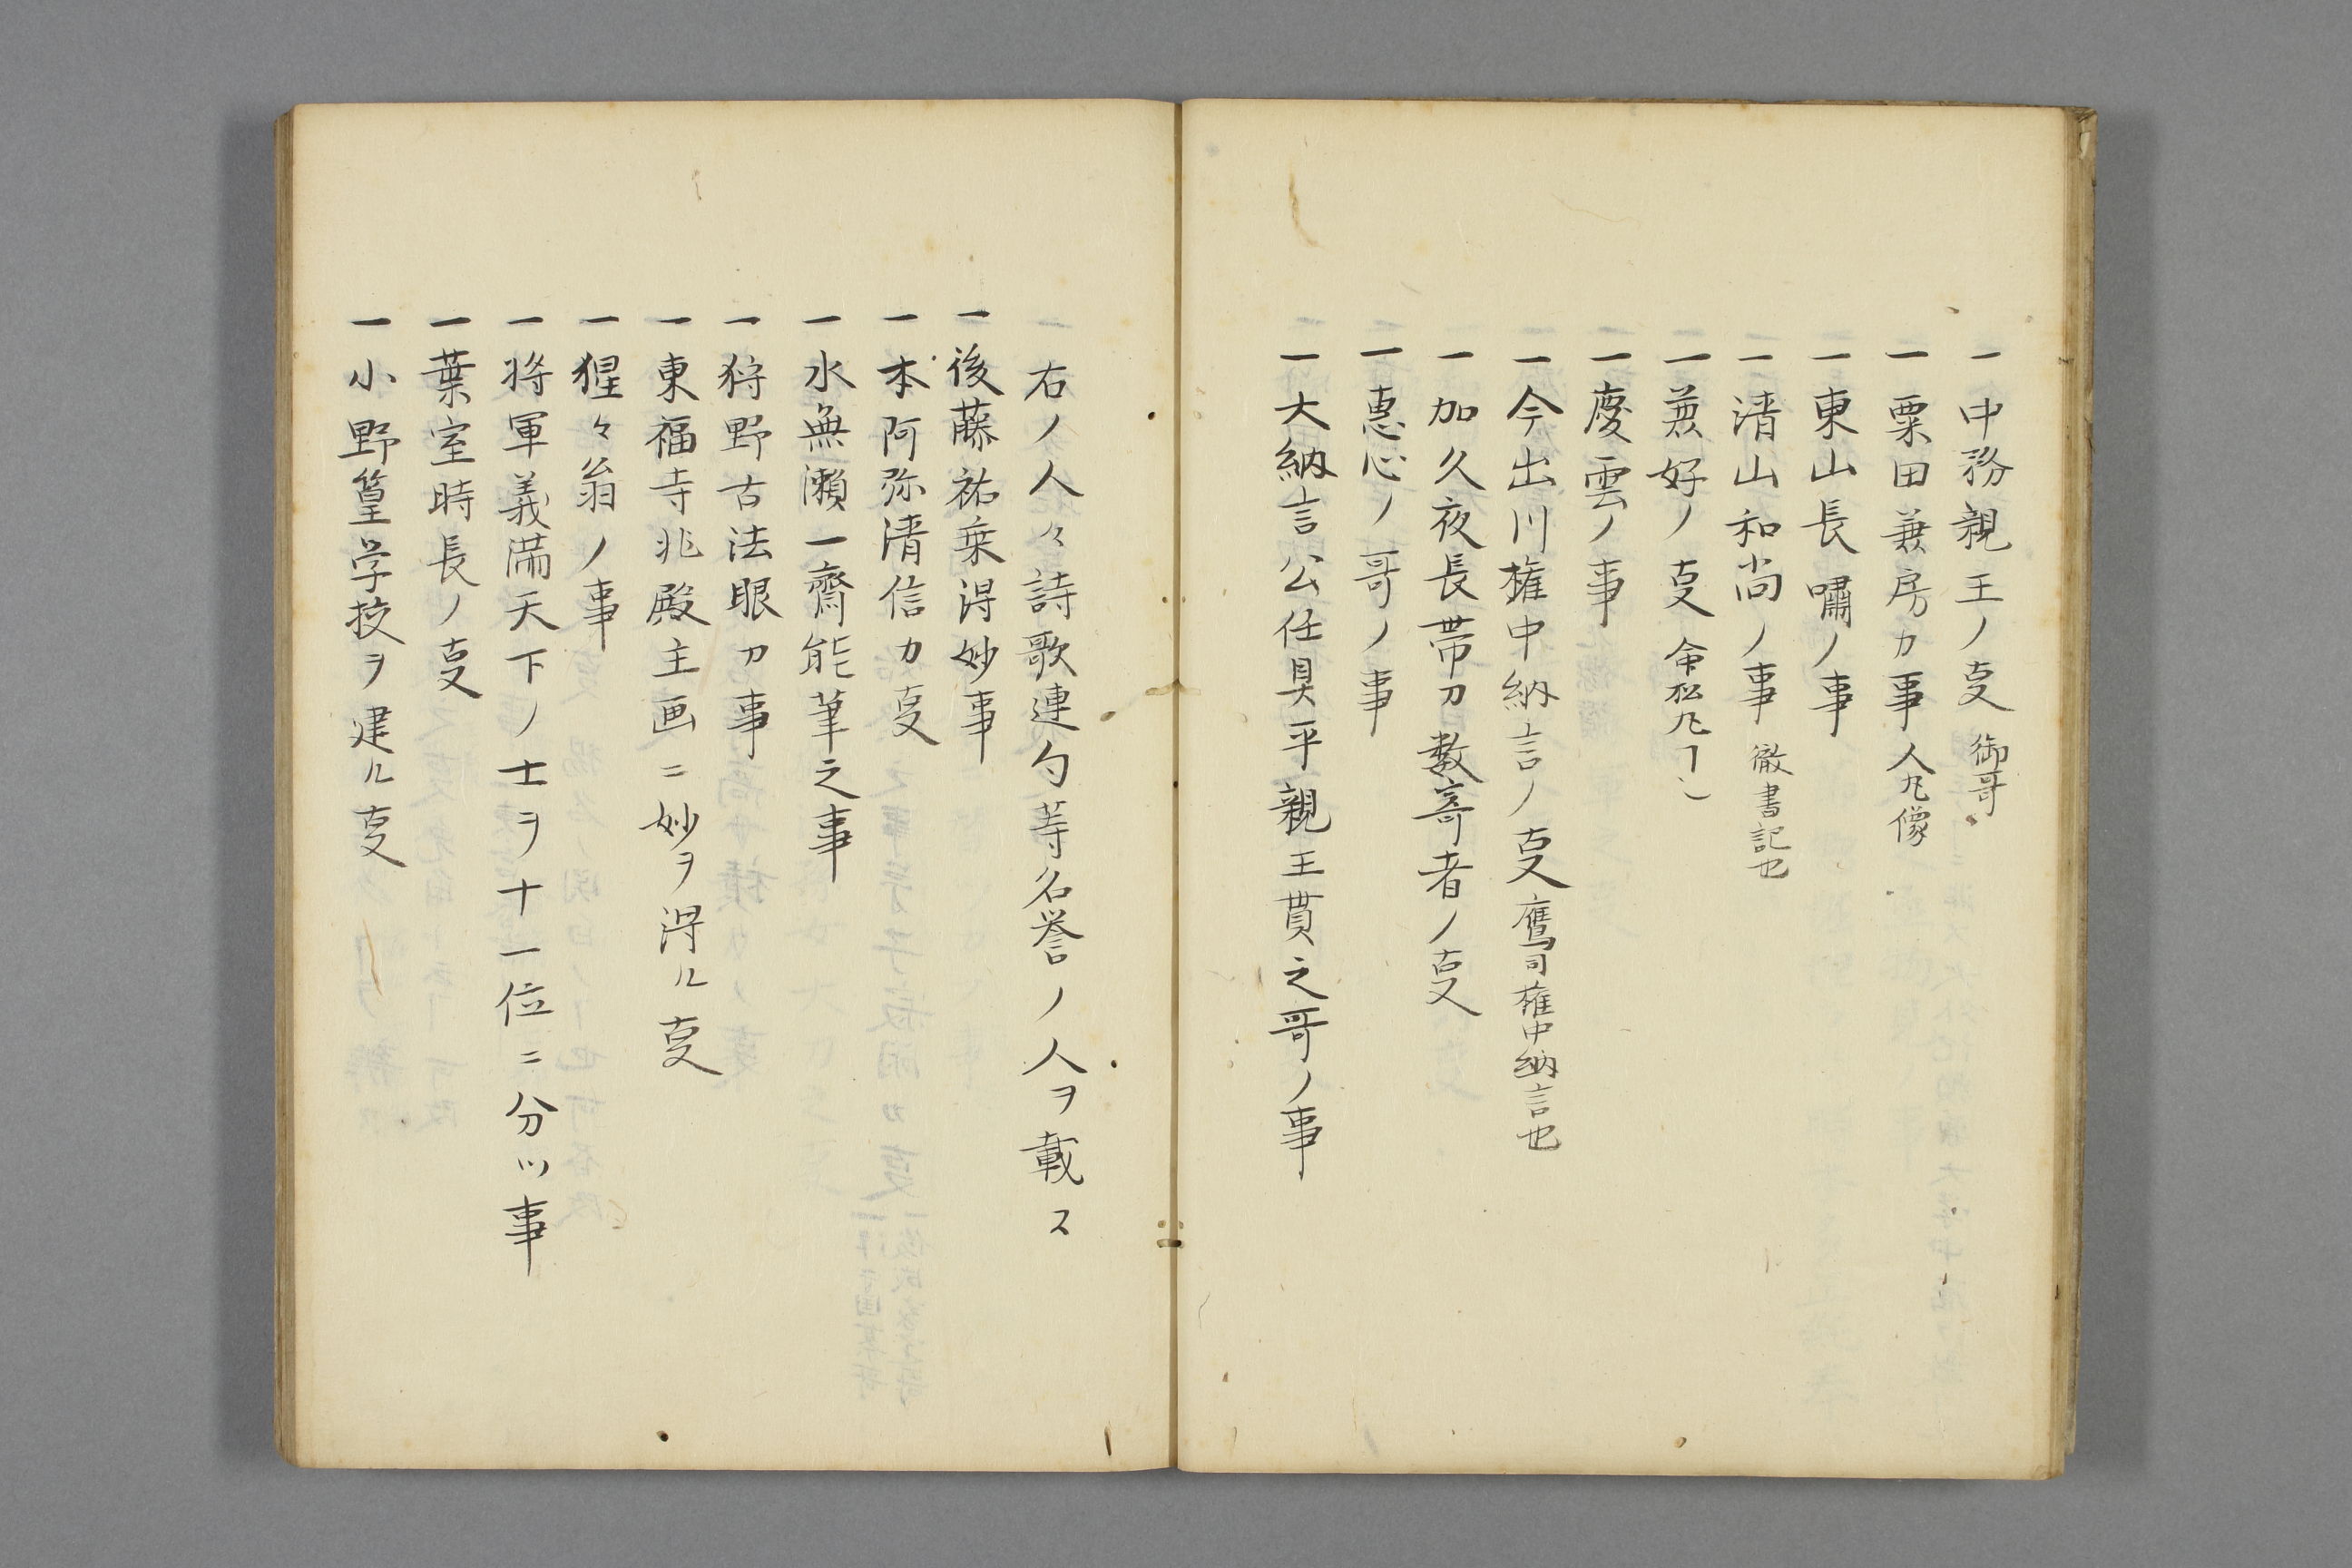 一中務親王ノ叓 御哥
一粟田兼房カ事 人丸像
一東山長嘯ノ事
一清山和尚ノ事 徹書記也
一兼好ノ叓 命松丸ヿ
一慶雲ノ事
一今出川権中納言ノ叓 鷹司権中納言也
一加久夜長帯刀数寄者ノ叓
一恵心ノ哥ノ事
一大納言公任具平親王貫之哥ノ事
右ノ人々詩歌連句等名誉ノ人ヲ載ス
一後藤祐乗得妙事
一本阿弥清信カ叓
一水無瀬一齋能筆之事
一狩野古法眼カ事
一東福寺兆殿主画ニ妙ヲ得ル叓
一猩々翁ノ事
一将軍義満天下ノ士ヲ十一位ニ分ツ事
一葉室時長ノ叓
一小野篁学校ヲ建ル叓